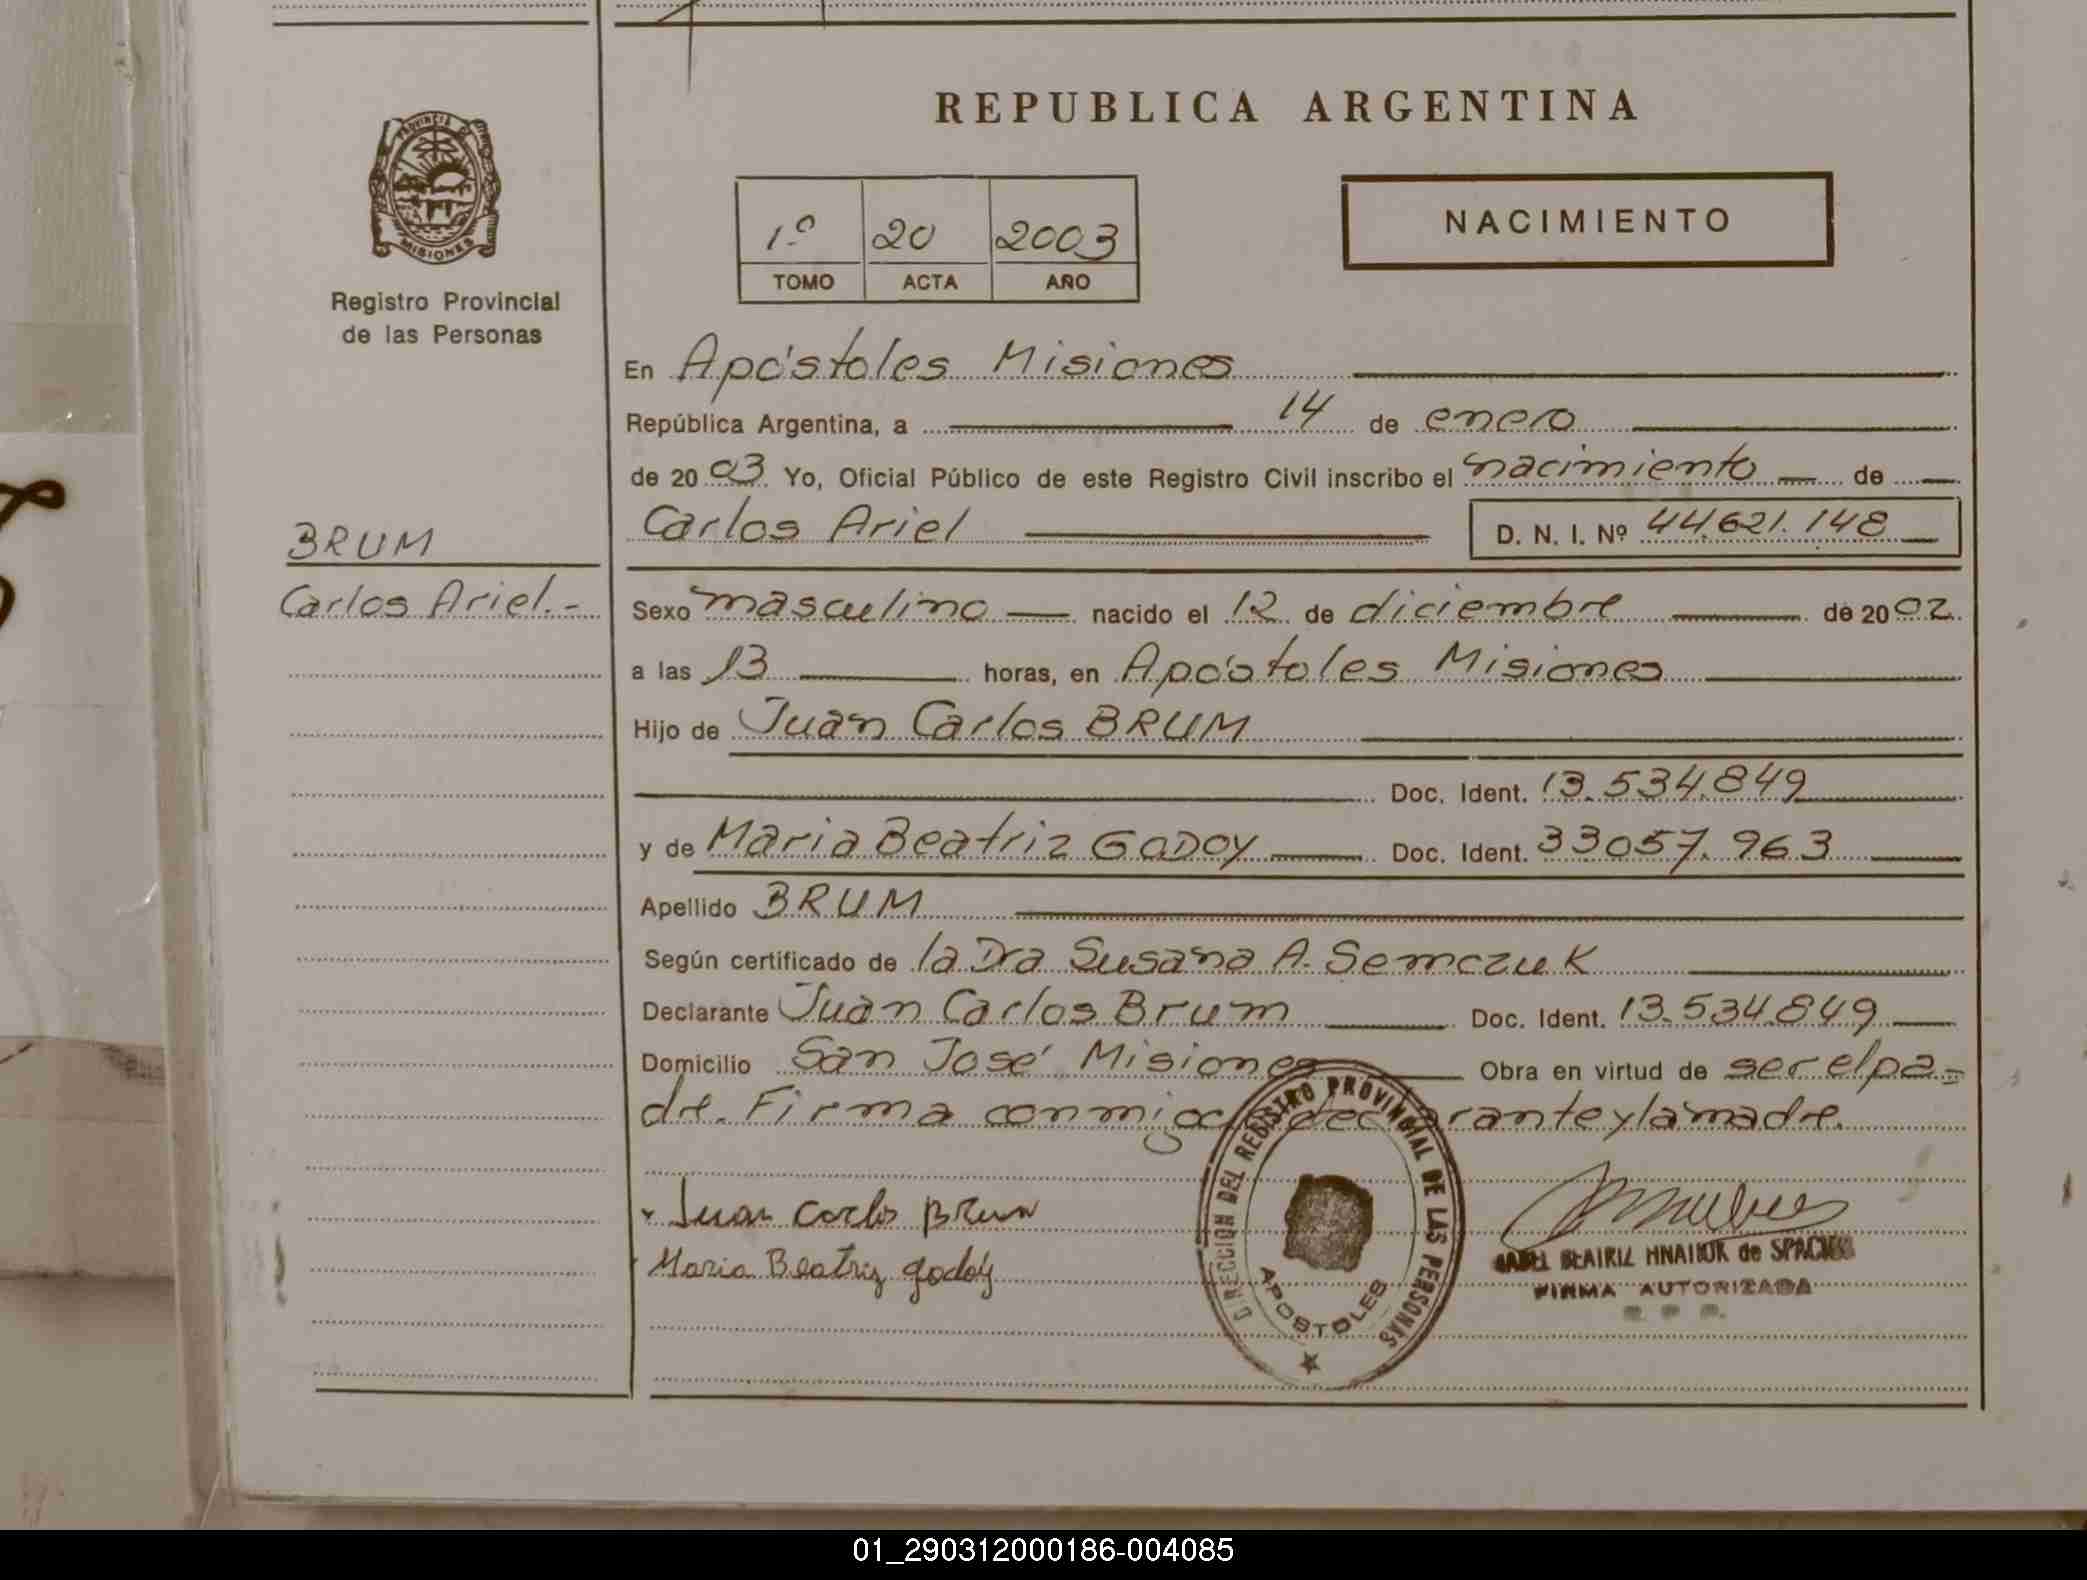 REPUBLICA ARGENTINA
PROVINCIA DE
MISIONES
Registro Provincial
de las Personas
1º 20 2003
TOMO ACTA AÑO
NACIMIENTO
En Apóstoles Misiones
República Argentina, a 14 de enero
de 2003 Yo, Oficial Público de este Registro Civil inscribo el nacimiento de
Carlos Ariel D. N. I. Nº 44.621.148
BRUM
Carlos Ariel.-
Sexo masculino nacido el 12 de diciembre de 2002
a las 13 horas, en Apóstoles Misiones
Hijo de Juan Carlos BRUM
Doc. Ident. 13.534.849
y de Maria Beatriz GODOY Doc. Ident. 33057.963
Apellido BRUM
Según certificado de la Dra Susana A. Semczuk
Declarante Juan Carlos Brum Doc. Ident. 13.534.849
Domicilio San José Misiones Obra en virtud de ser el pa-
dre. Firma conmigo declarante y la madre.
Juan Carlos Brum
Maria Beatriz godoy
DIRECCION DEL REGISTRO PROVINCIAL DE LAS PERSONAS
APOSTOLES
BEATRIZ de
FIRMA AUTORIZADA
R. P. P.
01_290312000186-004085